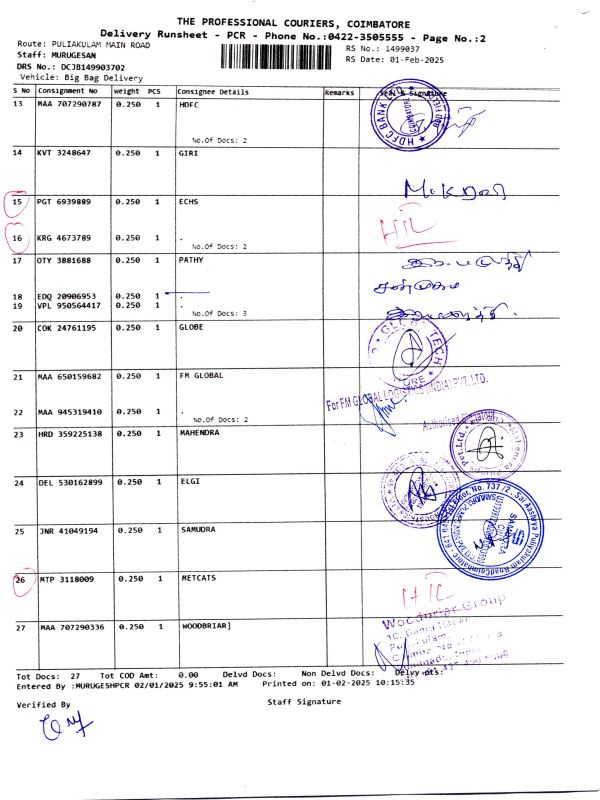 THE PROFESSIONAL COURIERS, COIMBATORE
Delivery Runsheet - PCR - Phone No.:0422-3505555 - Page No.:2
Route: PULIAKULAM MAIN ROAD RS No.: 1499037
Staff: MURUGESAN RS Date: 01-Feb-2025
DRS No.: DCJB149903702
Vehicle: Big Bag Delivery
S No Consignment No Weight PCS Consignee Details Remarks Seal & Signature
13 MAA 707290787 0.250 1 HDFC
HDFC BANK COIMBATORE
No.Of Docs: 2
14 KVT 3248647 0.250 1 GIRI
15 PGT 6939889 0.250 1 ECHS
HTL
16 KRG 4673789 0.250 1 .
No.Of Docs: 2
17 OTY 3881688 0.250 1 PATHY
18 EDQ 20906953 0.250 1 .
19 VPL 950564417 0.250 1 .
No.Of Docs: 3
20 COK 24761195 0.250 1 GLOBE
21 MAA 650159682 0.250 1 FM GLOBAL
For FM GLOBAL LOGISTICS (INDIA) PVT. LTD.
22 MAA 945319410 0.250 1 .
No.Of Docs: 2
Authorised Signatory
23 HRD 359225138 0.250 1 MAHENDRA
24 DEL 530162899 0.250 1 ELGI
25 JNR 41049194 0.250 1 SAMUDRA
26 MTP 3118009 0.250 1 METCATS
HTL
27 MAA 707290336 0.250 1 WOODBRIAR]
Woodbriar Group
Tot Docs: 27 Tot COD Amt: 0.00 Delvd Docs: Non Delvd Docs: Delvy pts:
Entered By :MURUGESHPCR 02/01/2025 9:55:01 AM Printed on: 01-02-2025 10:15:35
Verified By Staff Signature